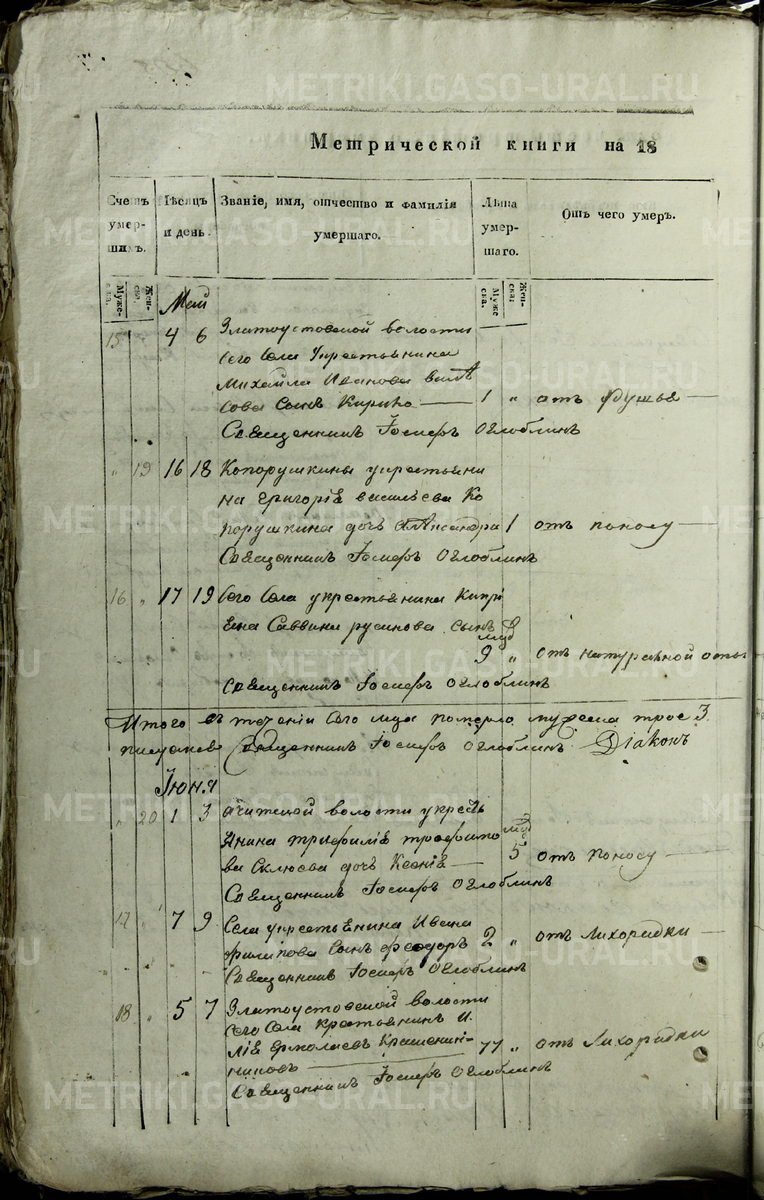 METRIKI.GASO-URAL.RU
Метрической книги на 18
Счетъ умершихъ.
Мѣсяцъ и день.
Званіе, имя, отчество и фамилія умершаго.
Лѣта умершаго.
Отъ чего умеръ.
Мужеска.
Женска.
Мужеска
Женска:
Май
15 4 6 Златоустовской волости
сего села укрестьянина
Михайла Иванова
сова сынъ Кирикъ — 1 „ отъ —
Священникъ Іосифъ Оглоблинъ
„ 19 16 18 Копорушкины укрестьяни
на Григорія васильева Ко
порушкина дочь Александра 1 отъ поносу —
Священникъ Іосифъ Оглоблинъ
16 „ 17 19 Сего села укрестьянина Кипрі
яна Саввина русинова сынъ
9 „ отъ натуральной оспы
Священникъ Іосифъ Оглоблинъ
Итого въ теченіи сего мца померло мужеска трое 3
Священникъ Іосифъ Оглоблинъ Діаконъ
Іюня
„ 20 1 3 Ачитской волости укресть
янина трифилія трофимо
ва дочь Ксенія — 5 отъ поносу —
Священникъ Іосифъ Оглоблинъ
17 „ 7 9 Села укрестьянина Ивана
филипова сынъ феодоръ 2 „ отъ Лихорадки —
Священникъ Іосифъ Оглоблинъ
18 „ 5 7 Златоустовской волости
сего села крестьянинъ И
лія Ермолаевъ Крашенин-
никовъ — 77 „ отъ Лихорадки
Священникъ Іосифъ Оглоблинъ